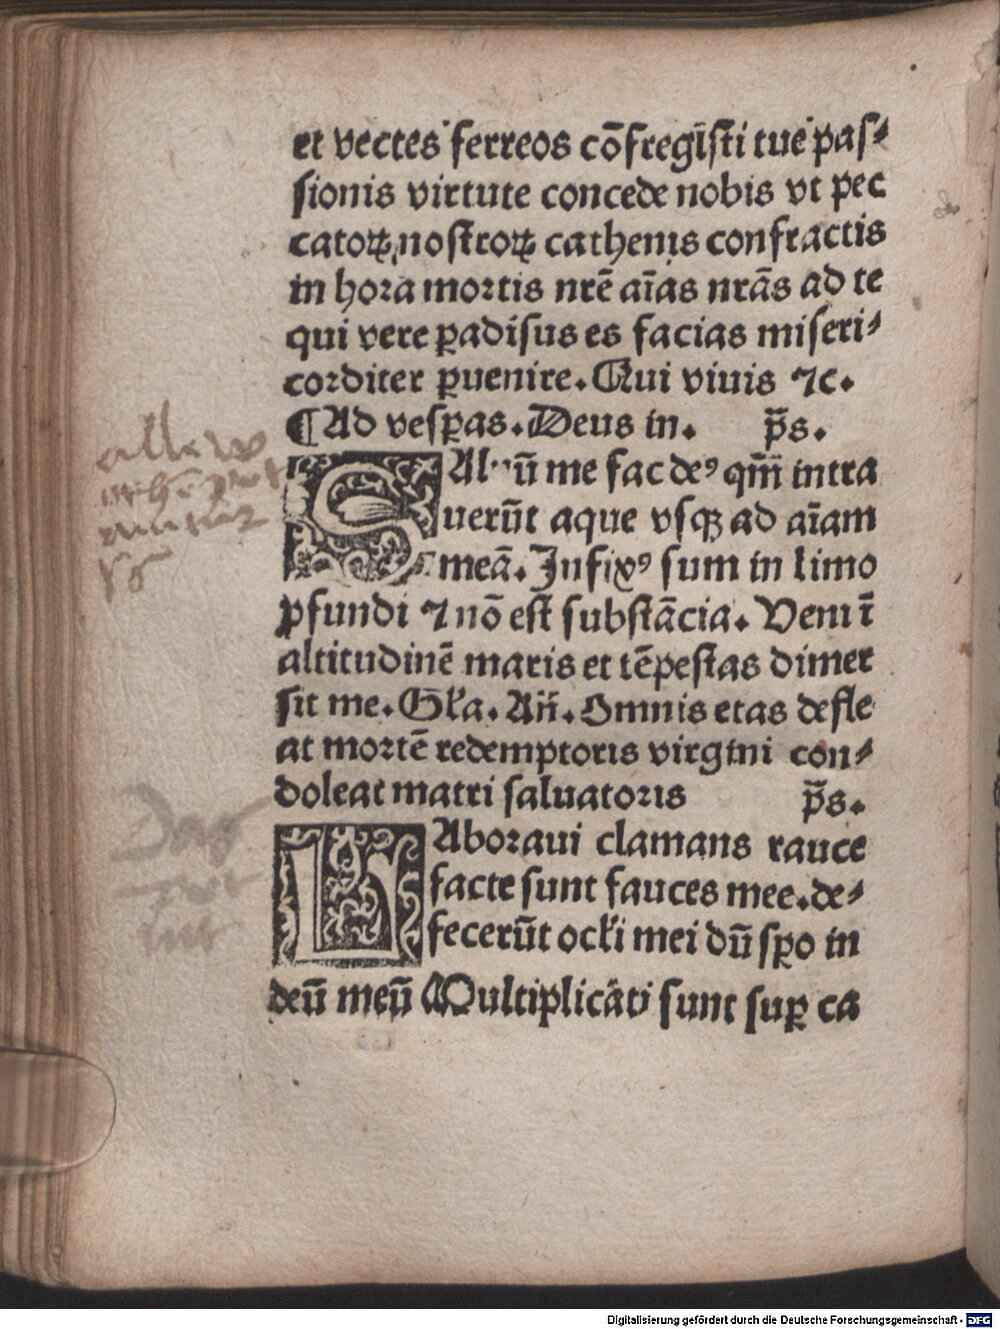 et vectes ferreos cōfregiſti tue paſ⸗
ſionis virtute concede nobis vt pec
catoꝝ noſtroꝝ cathenis confractis
in hoꝛa moꝛtis nrē aīas nrās ad te
qui vere ꝑadiſus es facias miſeri⸗
coꝛditer ꝑuenire. Qui viuis ⁊c.
¶ Ad veſꝑas. Deus in. p̄s.
SAluū me fac deꝰ qm̄ intra
uerūt aque vſqꝫ ad aīam
meā. Infixꝰ ſum in limo
ꝓfundi ⁊ nō eſt ſubſtācia. Veni ī
altitudinē maris et tēpeſtas dimer
ſit me. Gła. An̄. Omnis etas defle
at moꝛtē redemptoris virgini con⸗
doleat matri ſaluatoꝛis p̄s.
LAboꝛaui clamans rauce
facte ſunt fauces mee. de⸗
fecerūt ocłi mei dū ſꝑo in
deū meū Multiplicāti ſunt ſuꝑ ca
Digitalisierung gefördert durch die Deutsche Forschungsgemeinschaft - DFG